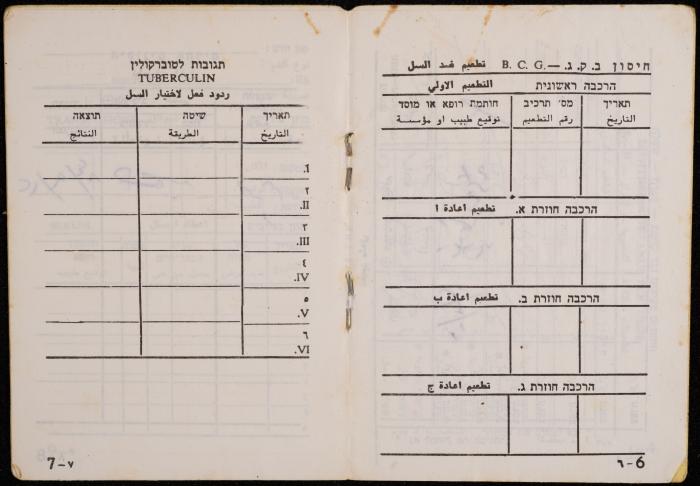 חיסון ב.ק.ג. — B. C. G. تطعيم ضد السل
הרכבה ראשונית التطعيم الاولي
תאריך מס׳ תרכיב חותמת רופא או מוסד
التاريخ رقم التطعيم توقيع طبيب او مؤسسة
הרכבה חוזרת א. تطعيم اعادة ا
הרכבה חוזרת ב. تطعيم اعادة ب
הרכבה חוזרת ג. تطعيم اعادة ج
٦-6
תגובות לטוברקולין
TUBERCULIN
ردود فعل لاختبار السل
תאריך שיטה תוצאה
التاريخ الطريقة النتائج
.١
٢
.II
٣
.III
٤
.IV
٥
.V
٦
.VI
7-٧